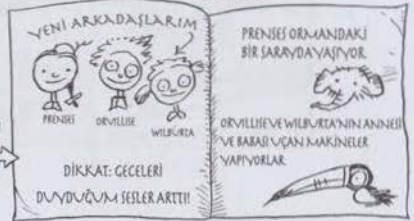 YENİ ARKADAŞLARIM
PRENSES
ORVILLISE
WILBURTA
DİKKAT: GECELERİ
DUYDUĞUM SESLER ARTTI!
PRENSES ORMANDAKİ
BİR SARAYDA YAŞIYOR
ORVILLISE VE WILBURTA'NIN ANNESİ
VE BABASI UÇAN MAKİNELER
YAPIYORLAR